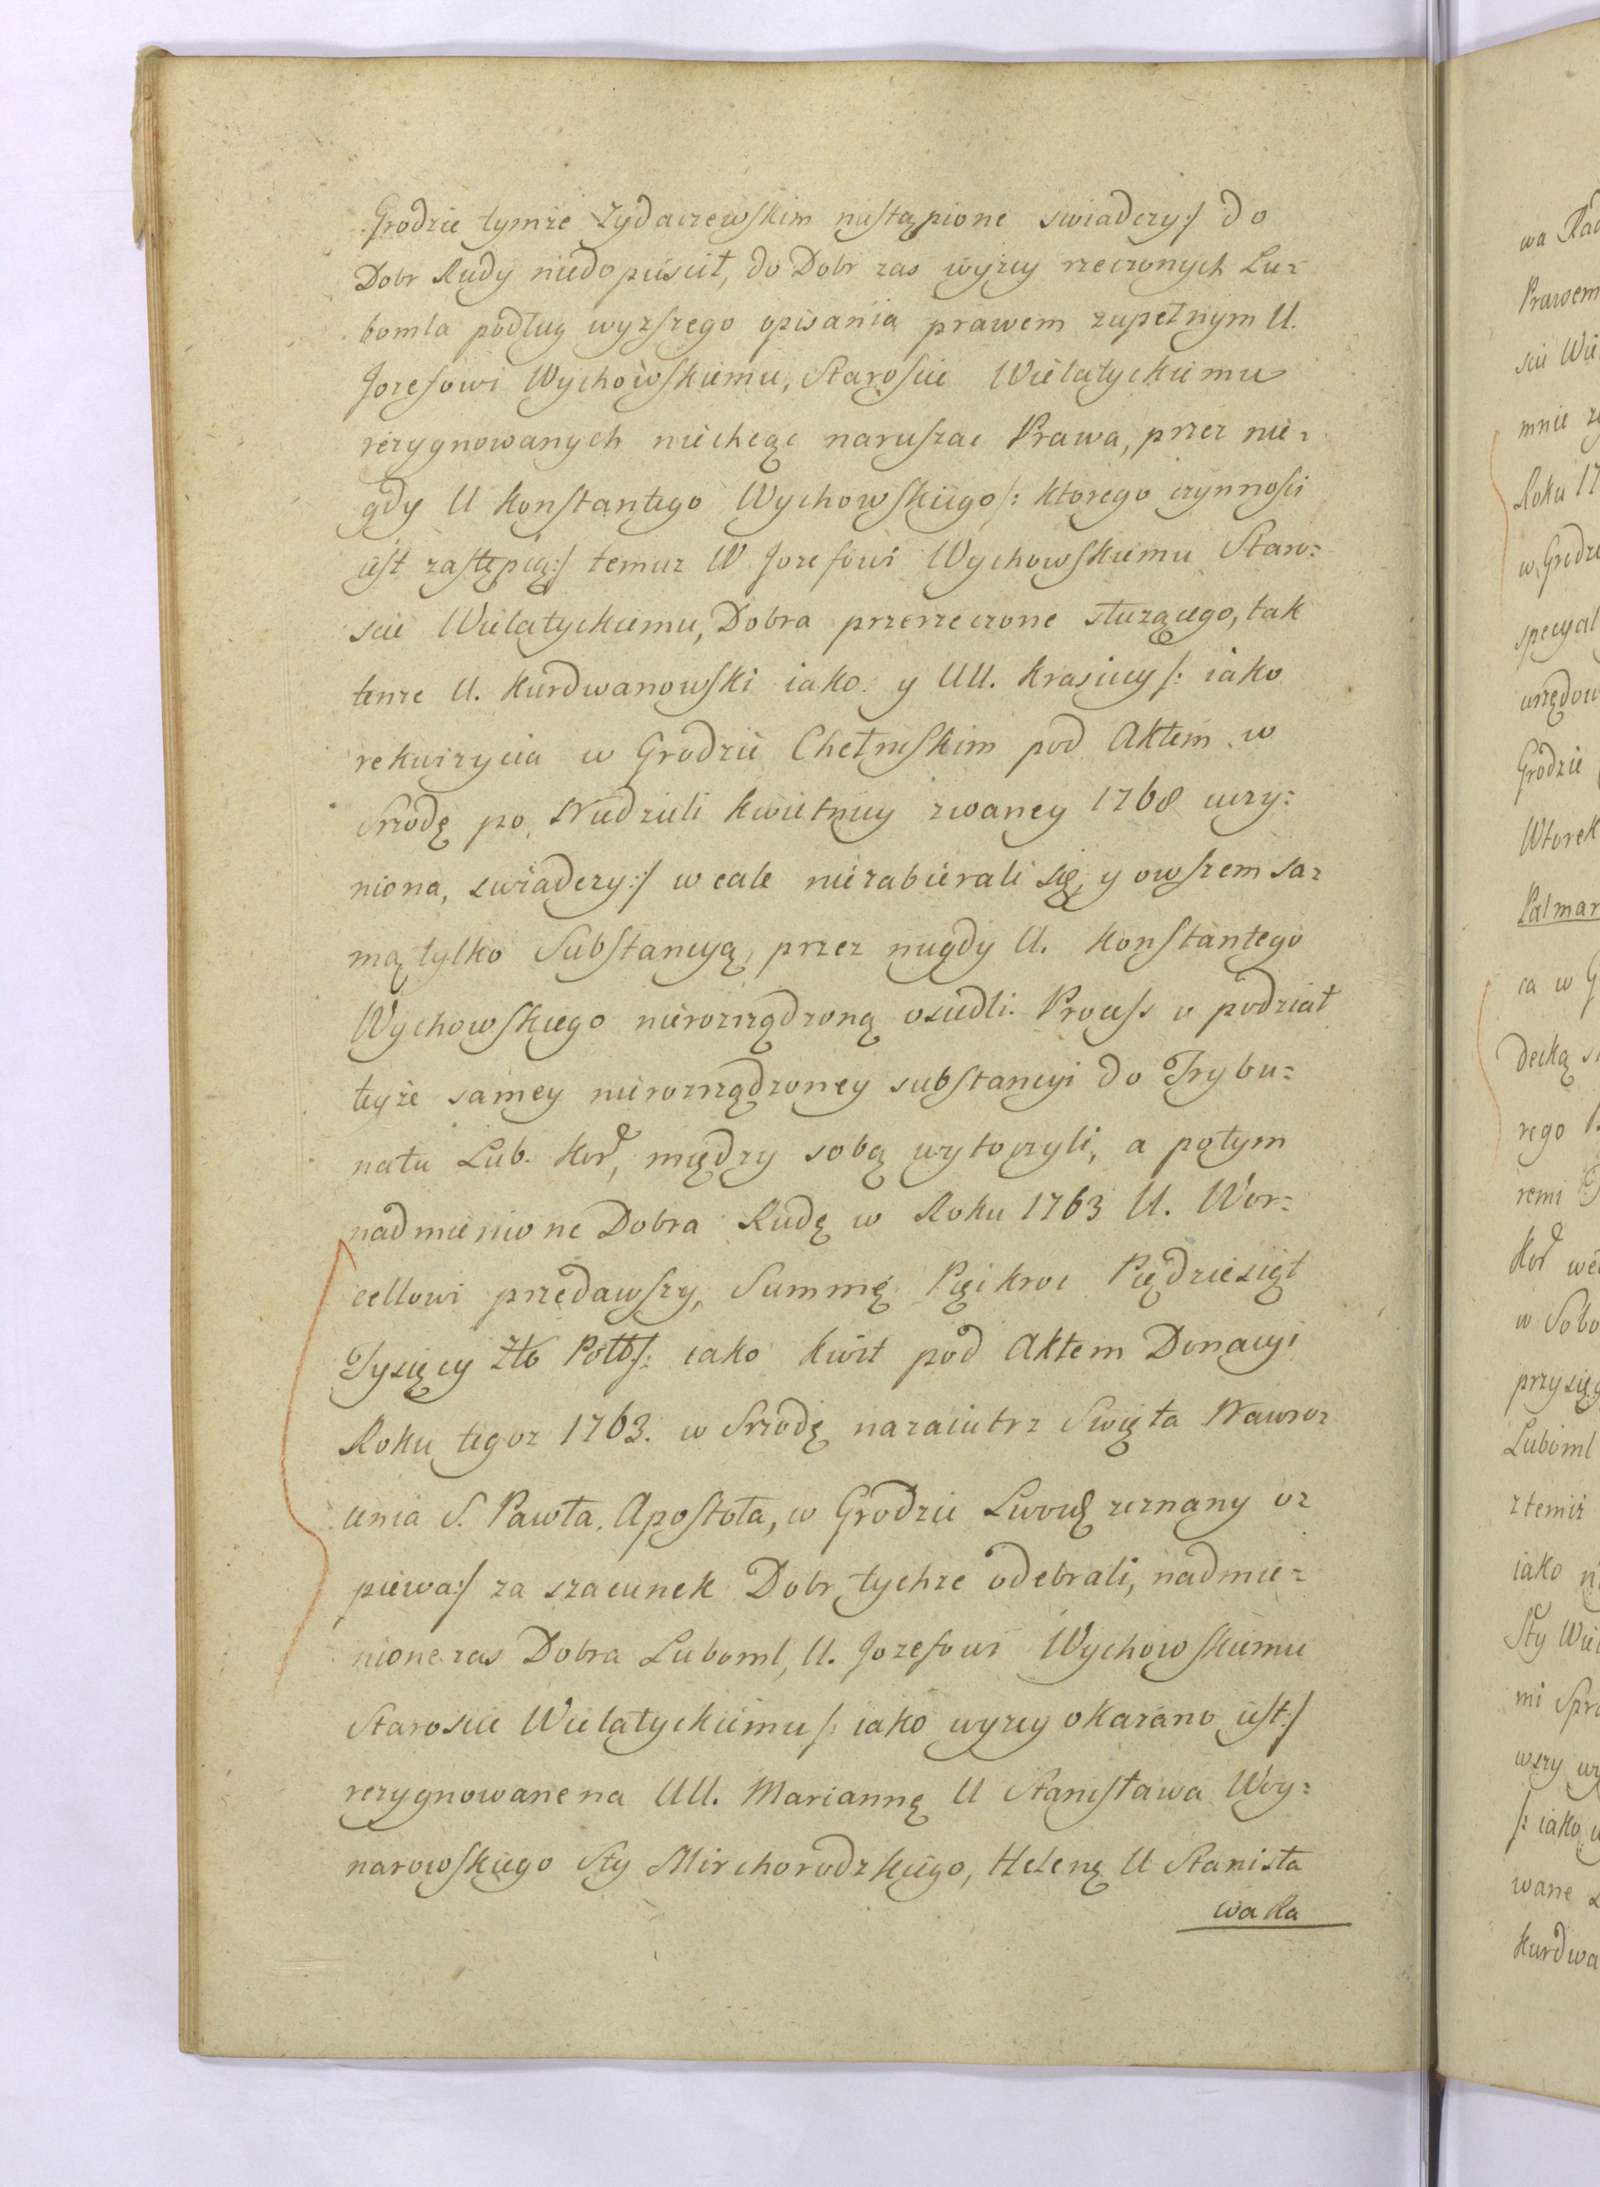 Grodzie tymże Zydaczewskim nastąpione swiadczy:/ do
Dobr Rudy niedopuścił, do Dobr zas wyżey rzeczonych Lu=
bomla podług wyższego opisania prawem zupełnym U.
Jozefowi Wychowskiemu, Staroscie Wielatyckiemu
rezygnowanych niechcąc naruszac Prawa, przez nie=
gdy U Konstantego Wychowskiego /: ktorego czynności
iest zastępcą:/ temuz W Jozefowi Wychowskiemu Staro=
scie Wielatyckiemu, Dobra przerzeczone służącego, tak
tenze U. Kurdwanowski iako y UU. Krasiccy /: iako
rekwizycia w Grodzie Chełmskim pod Aktem w
Srzodę po Niedzieli Kwietniey zwaney 1768 uczy=
niona, swiadczy:/ w cale niezabierali się, y owszem sa=
mą tylko Substancyą, przez niegdy U. Konstantego
Wychowskiego nierozrządzoną osiedli. Process o podział
teyże samey nierozrządzoney substancyi do Trybu=
nału Lub. Kor, między sobą wytoczyli, a potym
nadmienione Dobra Rudę w Roku 1763 U. Wor=
cellowi przedawszy, Summę Pięćkroc Pięgdziesiąt
Tysięcy Zło Polł /: iako kwit pod Aktem Donacyi
Roku tegoz 1763. w Srzodę nazaiutrz Swięta Nawro=
cenia S. Pawła Apostoła, w Grodzie Lwow zeznany o=
piewa:/ za szacunek Dobr tychze odebrali, nadmie=
nione zas Dobra Luboml, U. Jozefowi Wychowskiemu
Staroscie Wielatyckiemu /: iako wyzey okazano iest:/
rezygnowane na UU. Mariannę U Stanisława Woy=
narowskiego Sty Mirchorodzkiego, Helenę U Stanisła
wa Ra
wa Rad
Prawem
scie Wie
mnie
Roku 17
w Grodzi
specyal
urzędow
Grodzie
Wtorek
Palmar
ca w G
decką
rego
remi
Kor
w Sobo
przysięg
Luboml
ztemiż
iako ni
Sty Wiel
mi Spra
wszy
/: iako
wane
Kurdwa